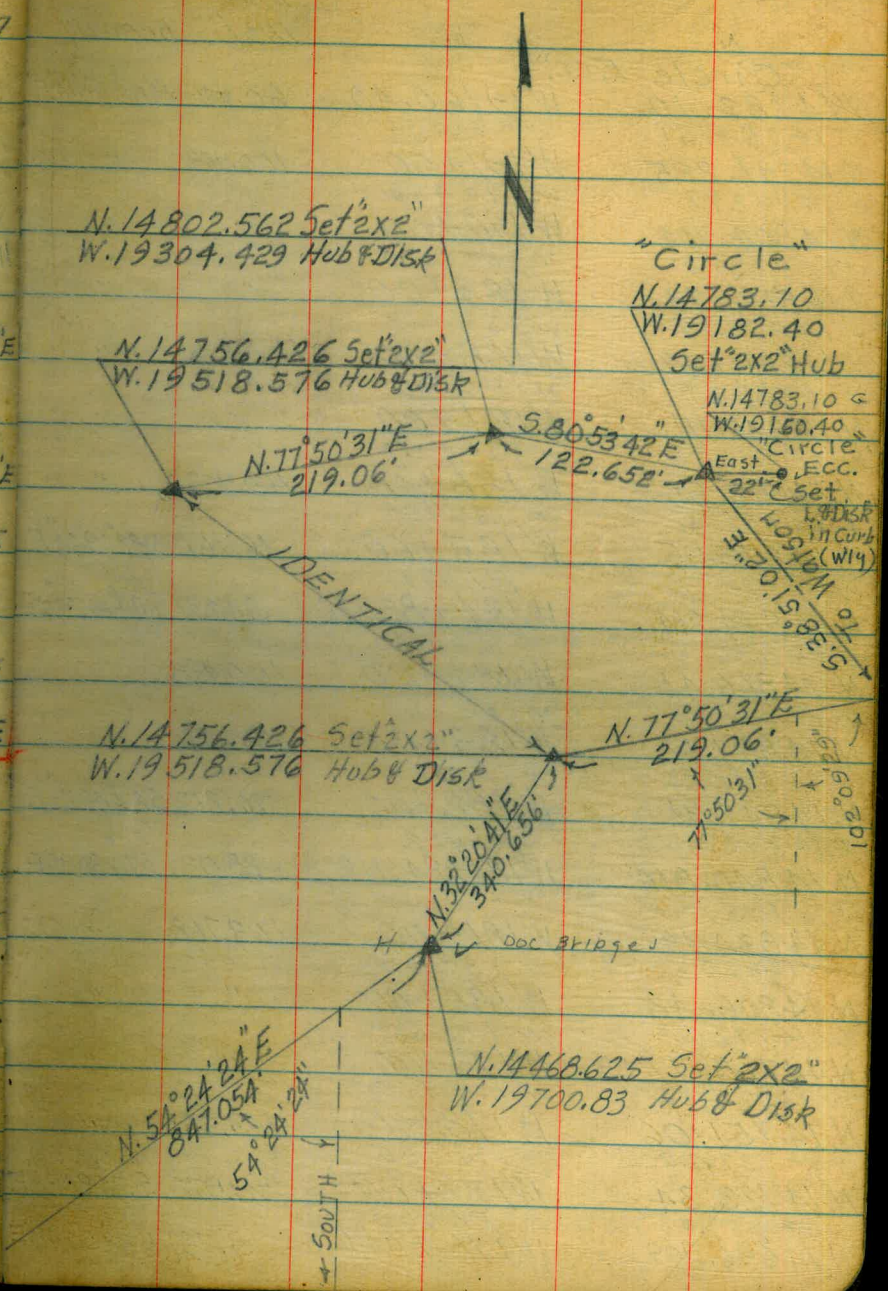 N
N. 14802.562 Set "2x2"
W. 19304.429 Hub & Disk
"Circle"
N. 14783.10
W. 19182.40
Set "2x2" Hub
N. 14756.426 Set "2x2"
W. 19518.576 Hub & Disk
N. 14783.10
W. 19160.40
"Circle"
Ecc.
Set
L. & Disk
in Curb
(Wly)
N. 77° 50' 31" E
219.06'
S. 80° 53' 42" E
122.652'
East
22'
S. 38° 51' 02" E
To Watson
IDENTICAL
N. 14756.426 Set 2x2"
W. 19518.576 Hub & Disk
N. 77° 50' 31" E
219.06'
77° 50' 31"
102° 09' 29"
N. 32° 20' 41" E
340.656'
H
Doc Bridges
N. 14468.625 Set "2x2"
W. 19700.83 Hub & Disk
N. 54° 24' 24" E
847.054'
54° 24' 24"
SOUTH